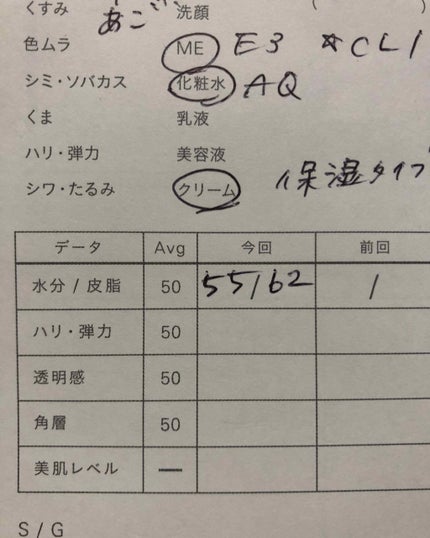 くすみ 洗顔 ( )
あご
色ムラ ME E3 ★CL1
シミ・ソバカス 化粧水 AQ
くま 乳液
ハリ・弾力 美容液
シワ・たるみ クリーム 保湿タイプ
データ Avg 今回 前回
水分 / 皮脂 50 55/62 /
ハリ・弾力 50
透明感 50
角層 50
美肌レベル —
S / G